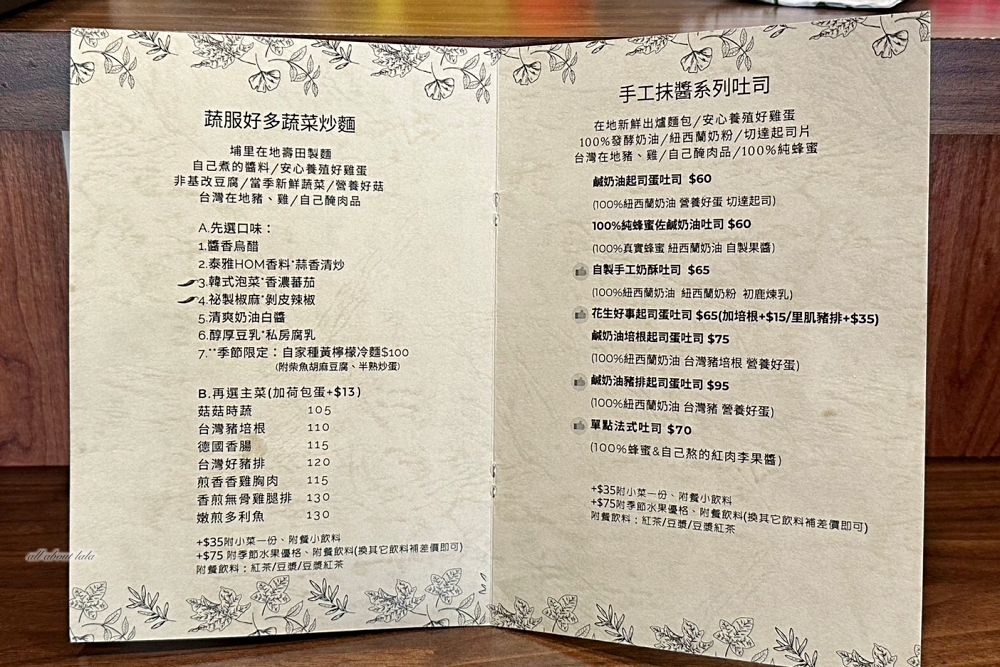 蔬服好多蔬菜炒麵
埔里在地壽田製麵
自己煮的醬料/安心養殖好雞蛋
非基改豆腐/當季新鮮蔬菜/營養好菇
台灣在地豬、雞/自己醃肉品
A.先選口味：
1.醬香烏醋
2.泰雅HOM香料*蒜香清炒
3.韓式泡菜*香濃蕃茄
4.祕製椒麻*剝皮辣椒
5.清爽奶油白醬
6.醇厚豆乳*私房腐乳
7.**季節限定：自家種黃檸檬冷麵$100
(附柴魚胡麻豆腐、半熟炒蛋)
B.再選主菜(加荷包蛋+$13)
菇菇時蔬 105
台灣豬培根 110
德國香腸 115
台灣好豬排 120
煎香香雞胸肉 115
香煎無骨雞腿排 130
嫩煎多利魚 130
+$35附小菜一份、附餐小飲料
+$75 附季節水果優格、附餐飲料(換其它飲料補差價即可)
附餐飲料：紅茶/豆漿/豆漿紅茶
all about lulu
手工抹醬系列吐司
在地新鮮出爐麵包/安心養殖好雞蛋
100%發酵奶油/紐西蘭奶粉/切達起司片
台灣在地豬、雞/自己醃肉品/100%純蜂蜜
鹹奶油起司蛋吐司 $60
(100%紐西蘭奶油 營養好蛋 切達起司)
100%純蜂蜜佐鹹奶油吐司 $60
(100%真實蜂蜜 紐西蘭奶油 自製果醬)
自製手工奶酥吐司 $65
(100%紐西蘭奶油 紐西蘭奶粉 初鹿煉乳)
花生好事起司蛋吐司 $65(加培根+$15/里肌豬排+$35)
鹹奶油培根起司蛋吐司 $75
(100%紐西蘭奶油 台灣豬培根 營養好蛋)
鹹奶油豬排起司蛋吐司 $95
(100%紐西蘭奶油 台灣豬 營養好蛋)
單點法式吐司 $70
(100%蜂蜜&自己熬的紅肉李果醬)
+$35附小菜一份、附餐小飲料
+$75附季節水果優格、附餐飲料(換其它飲料補差價即可)
附餐飲料：紅茶/豆漿/豆漿紅茶